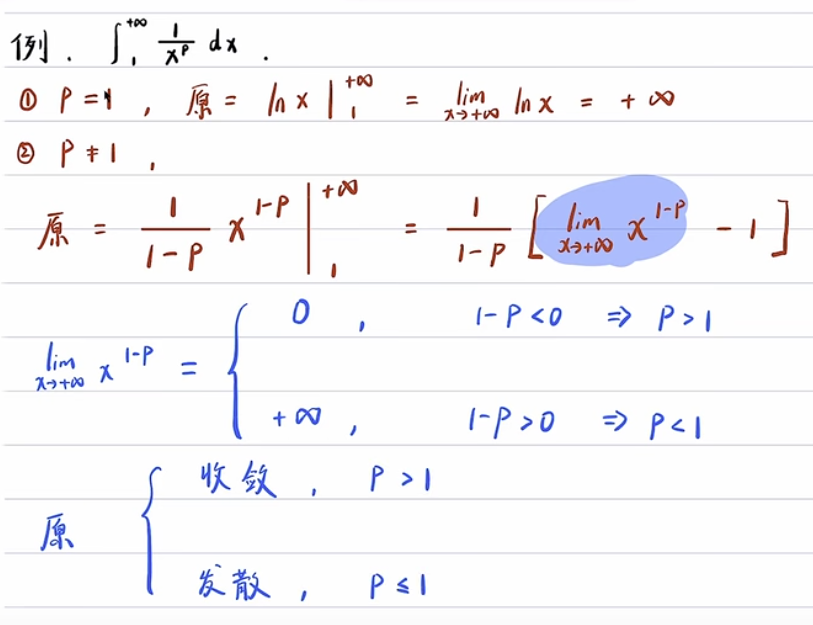 例. ∫₁^{+∞} 1/x^p dx.
① P=1, 原 = ln x |₁^{+∞} = lim_{x→+∞} ln x = +∞
② P≠1,
原 = 1/(1-P) x^{1-P} |₁^{+∞} = 1/(1-P) [ lim_{x→+∞} x^{1-P} - 1 ]
lim_{x→+∞} x^{1-P} = { 0, 1-P<0 ⇒ P>1
+∞, 1-P>0 ⇒ P<1
原 { 收敛, P>1
发散, P≤1